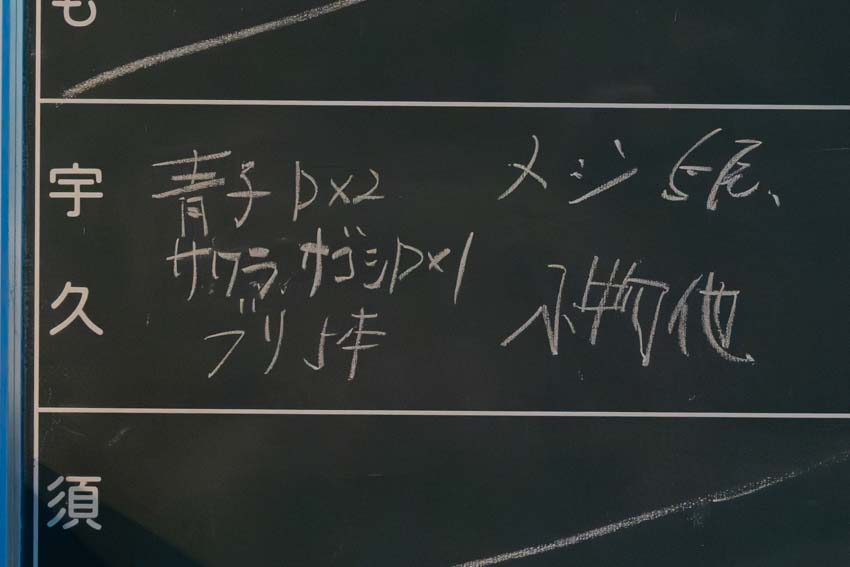 も
宇久
青子D×2
サワラ、サゴシD×1
ブリ 5本
メジ 5尾、
小物他
須